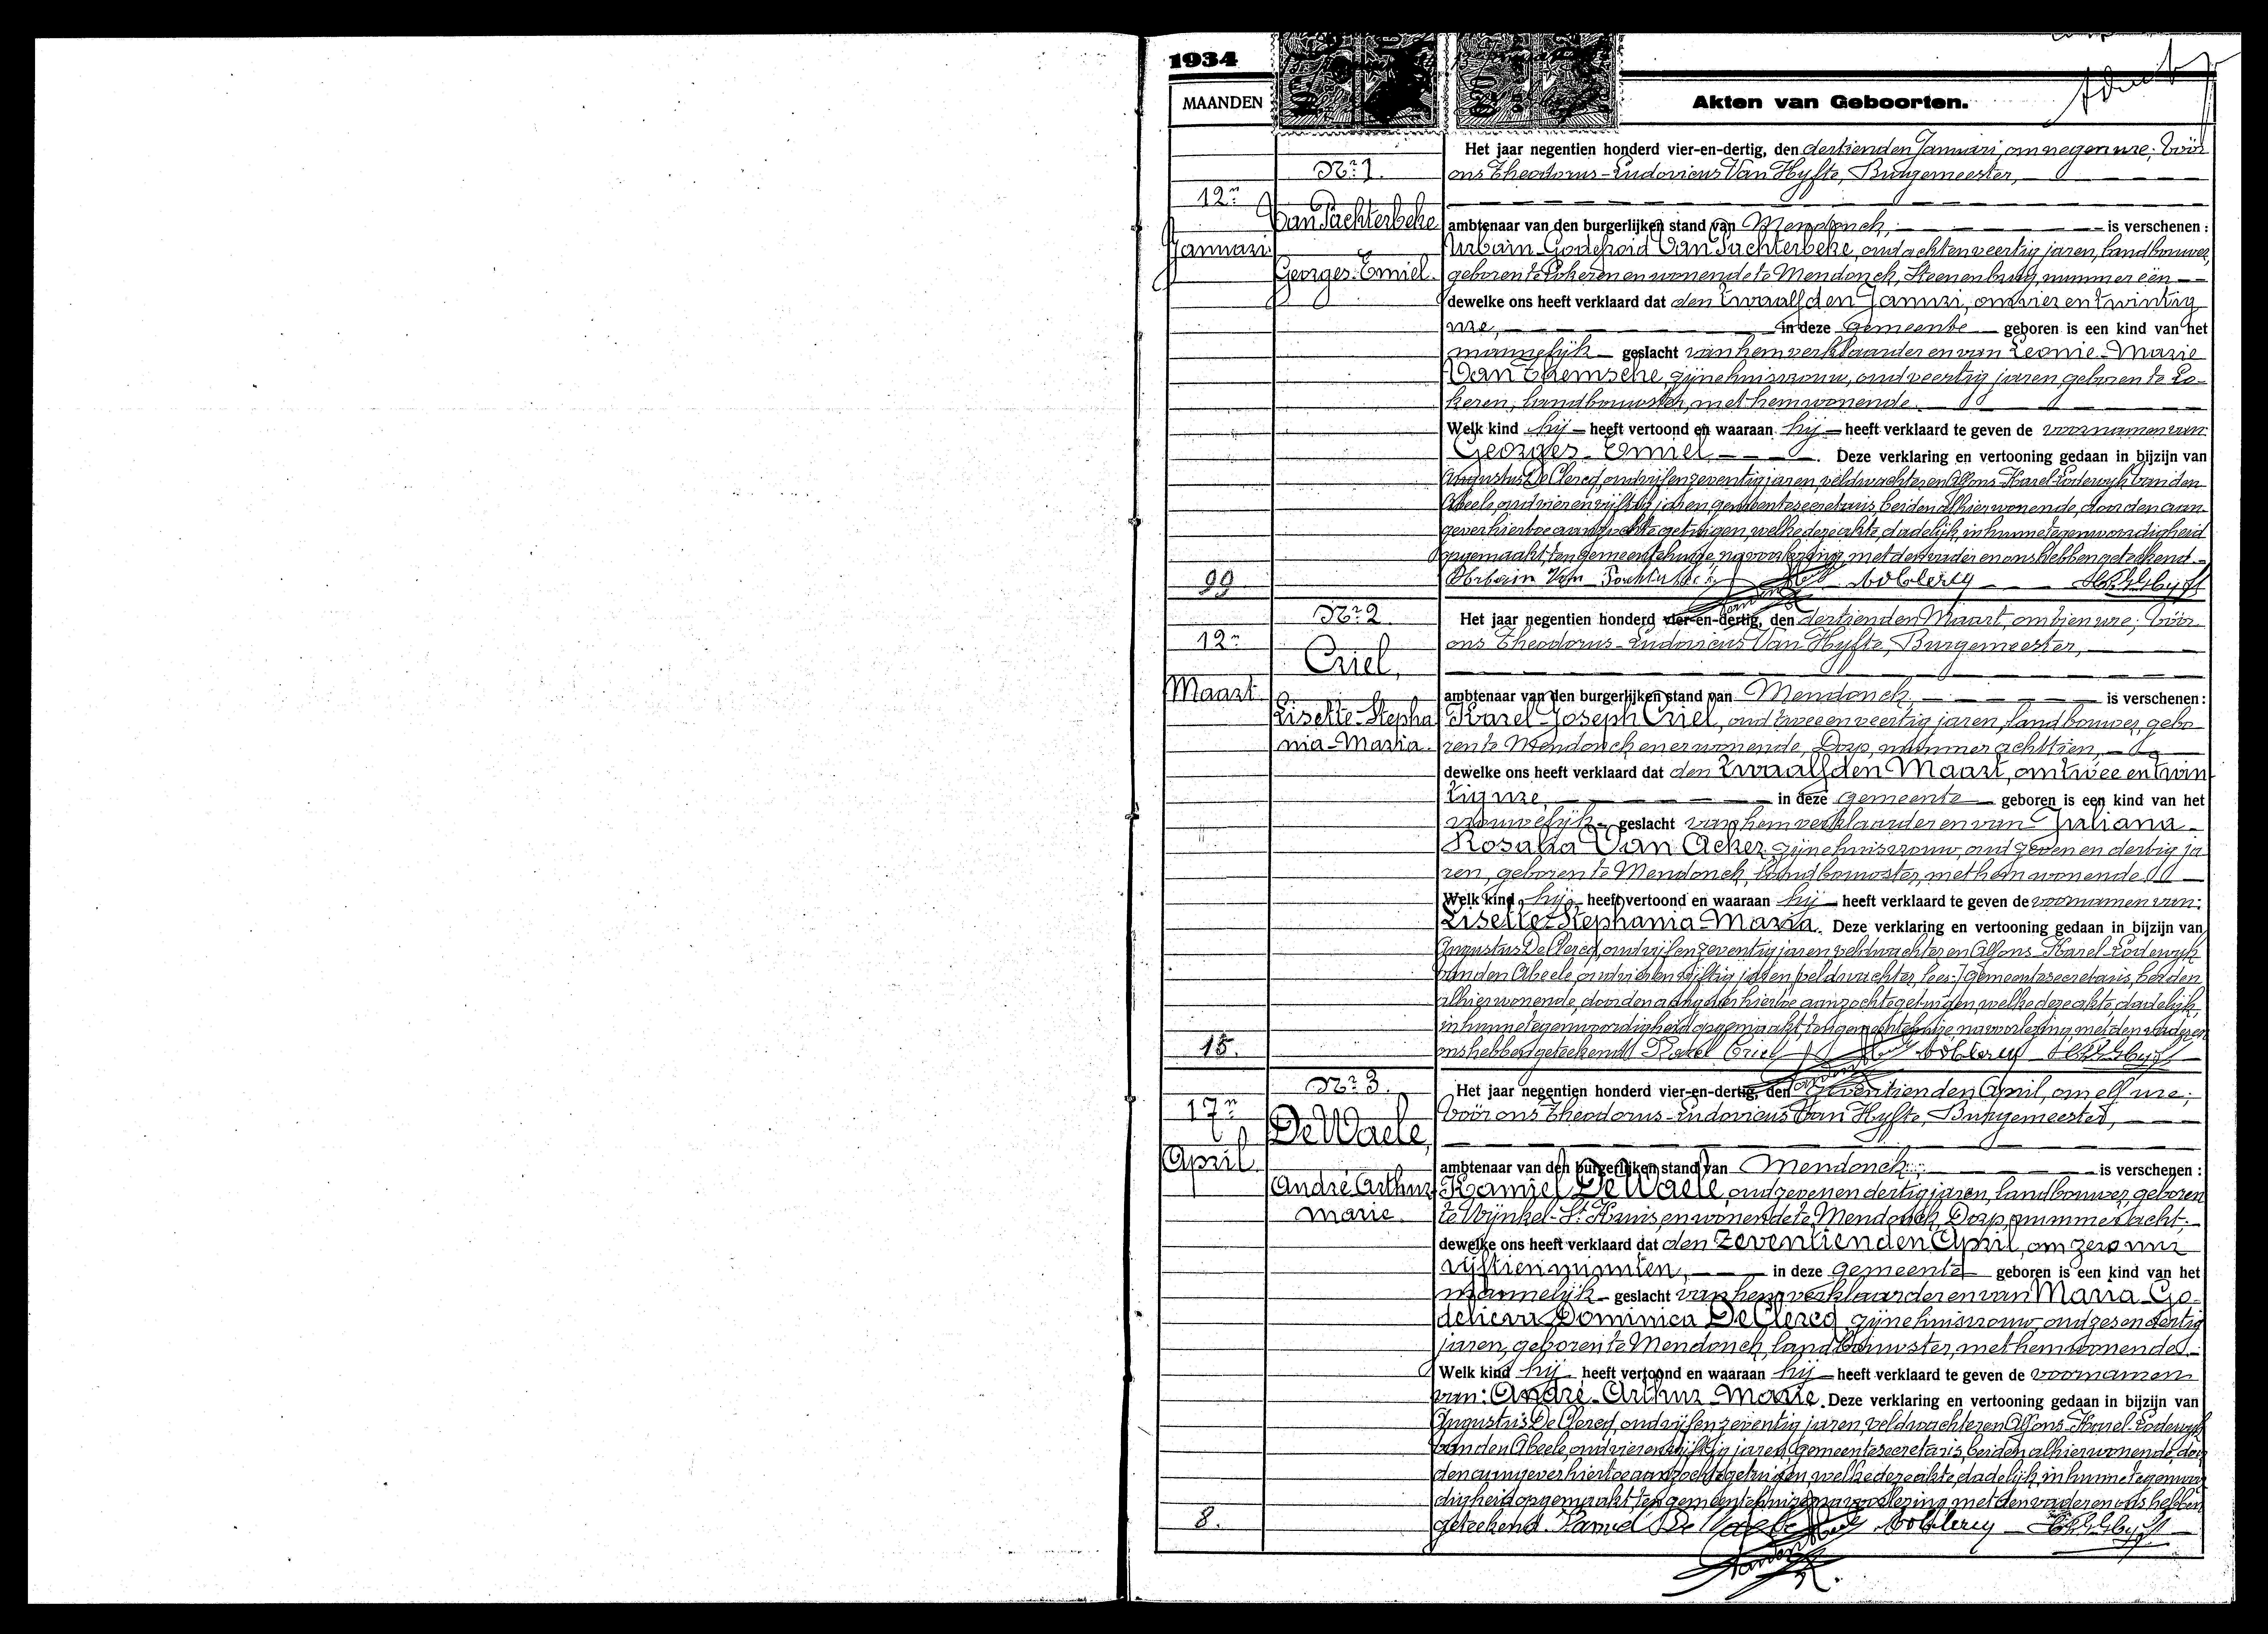 1934
MAANDEN
Akten van Geboorten.
Nr 1.
12n
Januari
Van Pachterbeke
Georges-Emiel.
99
Het jaar negentien honderd vier-en-dertig, den dertienden Januari, om negen ure; vóór
ons Theodorus-Ludovicus Van Hyfte, Burgemeester,
ambtenaar van den burgerlijken stand van Mendonck, is verschenen:
Urbain-Godefroid Van Pachterbeke, oud achtenveertig jaren, landbouwer,
geboren te Lokeren en wonende te Mendonck, Steenenburg, nummer één
dewelke ons heeft verklaard dat den twaalfden Januri, om vier en twintig
ure, in deze gemeente geboren is een kind van het
mannelijk geslacht van hem verklaarder en van Leonie-Marie
Van Themsche, zijne huisvrouw, oud veertig jaren, geboren te Lo-
keren, landbouwster, met hem wonende.
Welk kind hij heeft vertoond en waaraan hij heeft verklaard te geven de voornamen van:
Georges-Emiel. Deze verklaring en vertooning gedaan in bijzijn van
Augustus De Clercq, oud vijfenzeventig jaren, veldwachter en Alfons-Karel-Lodewijk Van den
Abeele, oud vierenvijftig jaren, gemeentesecretaris, beiden alhier wonende, door den aan-
gever hiertoe aanzochte getuigen, welke deze akte dadelijk, in hunne tegenwoordigheid
opgemaakt, ten gemeentehuize, na voorlezing, met den vader en ons hebben geteekend.
Nr 2
12n
Maart
Criel,
Lisette-Stepha
nia-Maria.
15.
Het jaar negentien honderd vier-en-dertig, den dertienden Maart, om tien ure; vóór
ons Theodorus-Ludovicus Van Hyfte, Burgemeester,
ambtenaar van den burgerlijken stand van Mendonck, is verschenen:
Karel-Joseph Criel, oud twee en veertig jaren, landbouwer, gebo-
ren te Mendonck en er wonende, Dorp, nummer achttien,
dewelke ons heeft verklaard dat den twaalfden Maart, om twee en twin
tig ure, in deze gemeente geboren is een kind van het
vrouwelijk geslacht van hem verklaarder en van Juliana-
Rosalia Van Acker, zijne huisvrouw, oud zeven en dertig ja
ren, geboren te Mendonck, landbouwster, met hem wonende.
Welk kind hij heeft vertoond en waaraan hij heeft verklaard te geven de voornamen van:
Lisette-Stephania-Maria. Deze verklaring en vertooning gedaan in bijzijn van
Augustus De Clercq, oud vijfenzeventig jaren, veldwachter en Alfons-Karel-Lodewijk
Van den Abeele, oud vierenvijftig jaren, veldwachter, lees: gemeentesecretaris, beiden
alhier wonende, door den aangever hiertoe aanzochte getuigen, welke deze akte, dadelijk,
in hunne tegenwoordigheid opgemaakt, ten gemeentehuize, na voorlezing, met den vader en
ons hebben geteekend. Karel Criel
Nr 3.
17n
April
De Waele,
André Arthur
Marie.
8.
Het jaar negentien honderd vier-en-dertig, den zeventienden April, om elf ure;
vóór ons Theodorus-Ludovicus Van Hyfte, Burgemeester,
ambtenaar van den burgerlijken stand van Mendonck, is verschenen:
Kamiel De Waele, oud zeven en dertig jaren, landbouwer, geboren
te Wijnkel-St. Kruis, en wonende te Mendonck, Dorp, nummer acht,
dewelke ons heeft verklaard dat den zeventienden April, om zero uur
vijftien minuten, in deze gemeente geboren is een kind van het
mannelijk geslacht van hem verklaarder en van Maria-Go-
Dominica De Clercq, zijne huisvrouw, oud zes en dertig
jaren, geboren te Mendonck, landbouwster, met hem wonende.
Welk kind hij heeft vertoond en waaraan hij heeft verklaard te geven de voornamen
van: André-Arthur-Marie. Deze verklaring en vertooning gedaan in bijzijn van
Augustus De Clercq, oud vijfenzeventig jaren, veldwachter en Alfons-Karel-Lodewijk
Van den Abeele, oud vierenvijftig jaren, gemeentesecretaris, beiden alhier wonende, door
den aangever hiertoe aanzochte getuigen, welke deze akte, dadelijk, in hunne tegenwoor
digheid opgemaakt, ten gemeentehuize, na voorlezing, met den vader en ons hebben
geteekend.